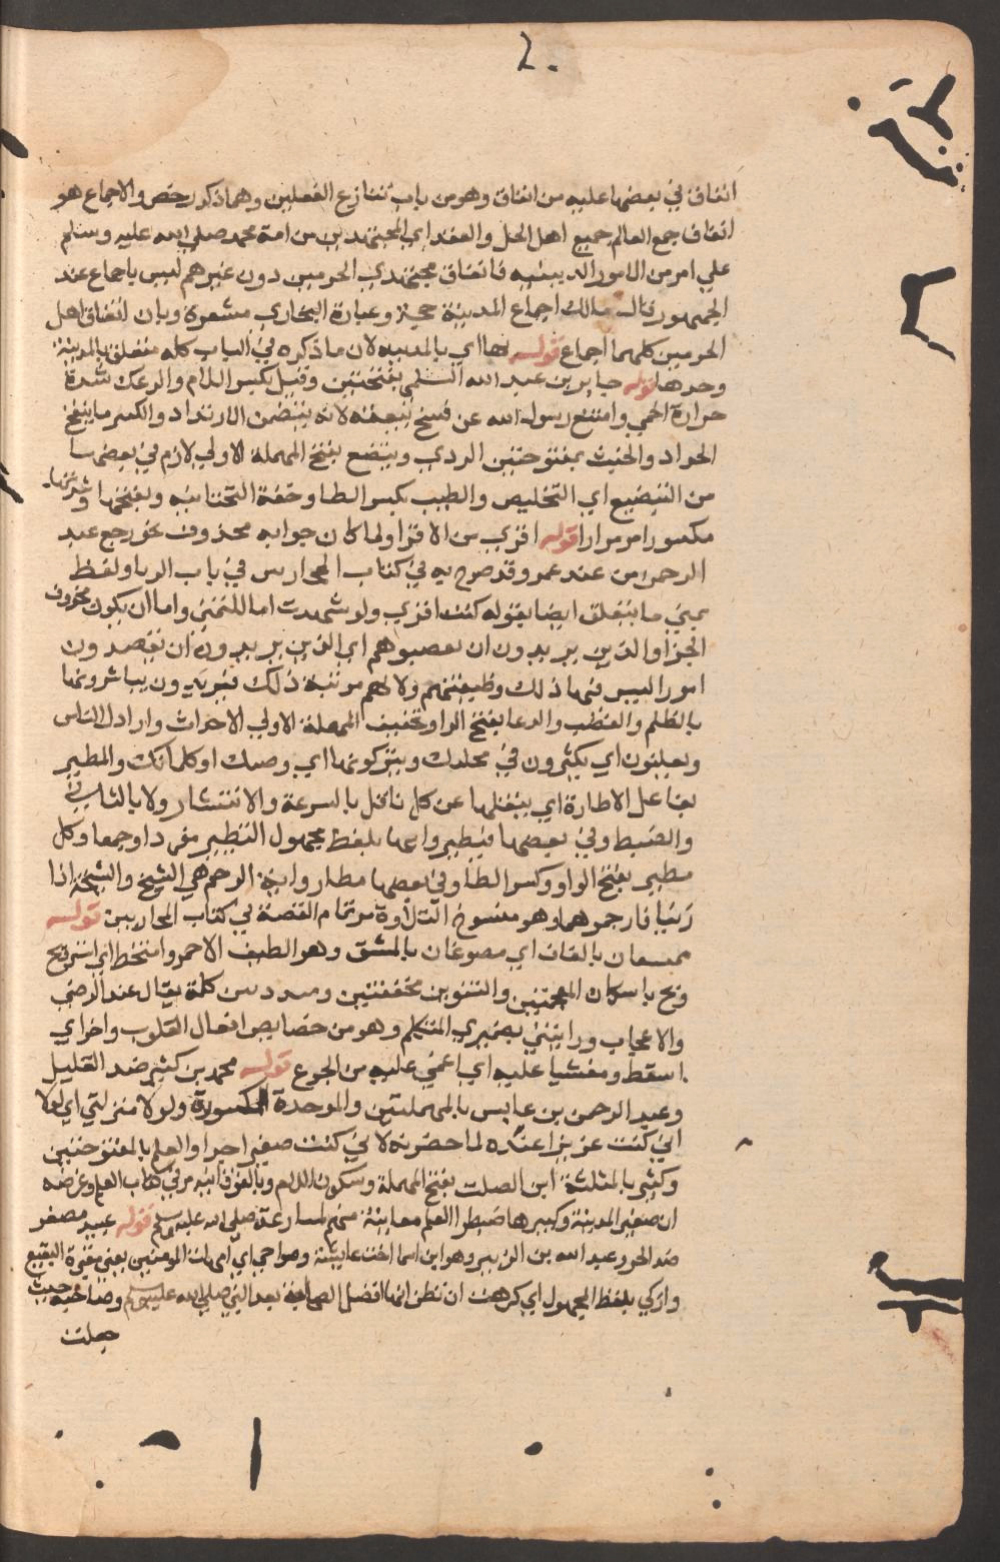 2.
اتفاق في بعضها عليه من اتفاق وهو من باب تنازع الفعلين وهما ذكر وحض والاجماع هو
اتفاق جمع العالم جميع اهل الحل والعقد اي المجتهدين من امة محمد صلى الله عليه وسلم
علي امر من الامور الدينيه فاتفاق مجتهدي الحرمين دون غيرهم ليس باجماع عند
الجمهور قال مالك اجماع المدينة حجة وعبارة البخاري مشعرة وبان اتفاق اهل
الحرمين كلهما اجماع قوله بها اي بالمدينه لان ما ذكره في الباب كله متعلق بالمدينة
وحدها قوله جابر بن عبد الله السلمي بفتحتين وقيل بكسر اللام والوعك شدة
حرارة الحمي وامتنع رسول الله عن فسخ بيعته لانه يتضمن الارتداد والكير ما ينفخ
الحداد والخبث بمفتوحتين الردي وينصع بفتح المهملة الاولي لازم في بعضها
من التنصيع اي التخليص والطيب بكسر الطا وخفة التحتانيه وبفتحها وشدتها
مكسورا مر مرارا قوله اقري من الاقرا ولما كان جوابه محذوف نحو رجع عبد
الرحمن من عند عمر وقد صرح به في كتاب المحاربين في باب الرجم او لفظ
بمني ما يتعلق ايضا بقوله كنت اقري ولو شهدت اما للتمني واما ان يكون محذوف
الجزا والذين يريدون ان يغصبوهم اي الذين يريدون ان يقصدون
امورا ليس فيها ذلك وظيفتهم ولا لهم مرتبة ذلك فيريدون يباشرونها
بالظلم والغضب والرعا بفتح الرا وتخفيف المهملة الاولي الاحداث واراذل الناس
ويغلبون اي يكثرون في مجلسك ويتركونها اي وصيتك او كلماتك والمطير
بفاعل الاطارة اي ينقلها عن كل ناقل بالسرعة والانتشار ولا بالتاني
والضبط وفي بعضها فيطيروا بها بلفظ مجهول التطيير مفردا وجمعا وكل
مطير بفتح الواو وكسر الطا وفي بعضها مطار واية الرجم هي الشيخ والشيخة اذا
زنيا فارجموهما وهو منسوخ التلاوة مر تمام القصة في كتاب المحاربين قوله
ممشقان بالقاف اي مصبوغان بالمشق وهو الطين الاحمر وامتخط اي استنثر
وبخ باسكان المعجمتين والتنوين مخففتين ومشددتين كلمة يقال عند الرضي
والاعجاب ورايتني بضميري المتكلم وهو من خصايص افعال القلوب واخر اي
اسقط ومغشيا عليه اي اغمي عليه من الجوع قوله محمد بن كثير ضد القليل
وعبد الرحمن بن عابس بالمهملتين والموحدة المكسورة ولولا منزلتي اي لولا
اني كنت عزيزا عنده لما حضرته لاني كنت صغيرا جدا والعلم بالمفتوحتين
وكثير بالمثلثة ابن الصلت بفتح المهملة وسكون اللام وبالفوقانيه مر في كتاب العلم وغرضه
ان صغير المدينة وكبيرها ضبطوا العلم معاينة منهم لسار عنه صلى الله عليه وسلم قوله عبيد مصغر
ضد الحر وعبد الله بن الزبير وهو ابن اسما اخت عايشة وصواحبي اي امهات المومنين يعني مقبرة البقيع
وازكي بلفظ المجهول اي كرهت ان تظن انها افضل الصحابة بعد النبي صلى الله عليه وسلم وصاحبيه حيث
جعلت